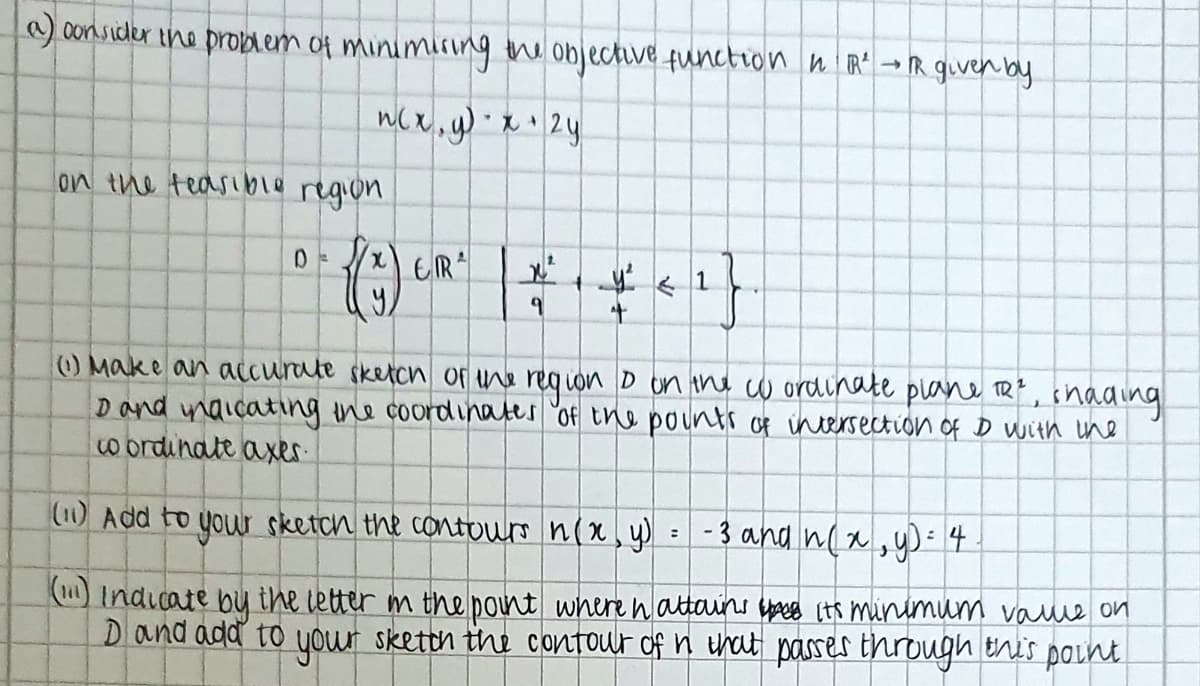 a) consider the problem of minimising the objective function n ℝ² → ℝ given by
n(x, y) = x + 2y
on the feasible region
D = { (x y) ∈ ℝ² | x²/9 + y²/4 ≤ 1 }.
(i) Make an accurate sketch of the region D on the coordinate plane ℝ², shading
D and indicating the coordinates of the points of intersection of D with the
coordinate axes.
(ii) Add to your sketch the contours n(x, y) = -3 and n(x, y) = 4.
(iii) Indicate by the letter m the point where n attains its minimum value on
D and add to your sketch the contour of n that passes through this point